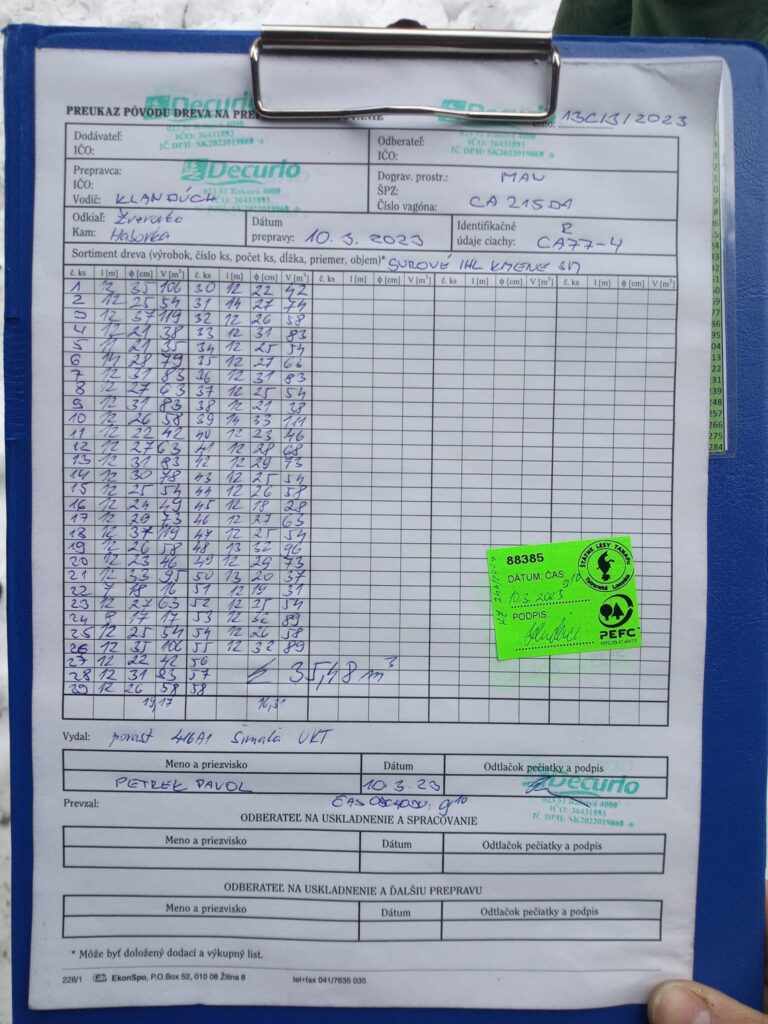 PREUKAZ PÔVODU DREVA NA PRE
Decurio
023 51 Raková 4000
IČO: 36431893
IČ DPH: SK2022019868 -6
Decurio
IČO: 36431893
IČ DPH: SK2022019868 -6
číslo: 13C/3/2023
Dodávateľ:
IČO:
Odberateľ:
IČO:
Prepravca:
IČO:
Vodič: KLANDÚCH
Decurio
023 51 Raková 4000
IČO: 36431893
IČ DPH: SK2022019868 -6
Doprav. prostr.: MAN
ŠPZ:
Číslo vagóna: CA 215DA
Odkiaľ:
Kam:
Dátum
prepravy: 10. 3. 2023
Identifikačné R
údaje ciachy: CA77-4
Sortiment dreva (výrobok, číslo ks, počet ks, dĺžka, priemer, objem)* SUROVÉ IHL KMENE SM
č. ks l [m] ϕ [cm] V [m³] č. ks l [m] ϕ [cm] V [m³] č. ks l [m] ϕ [cm] V [m³] č. ks l [m] ϕ [cm] V [m³] č. ks l [m] ϕ [cm] V [m³]
1 35 106 30 12 22 42
2 12 25 54 31 14 27 74
3 12 37 119 32 12 26 58
4 12 21 38 33 12 31 83
5 11 21 35 34 12 25 54
6 14 28 79 35 12 27 64
7 12 31 83 36 12 31 83
8 12 27 63 37 12 25 54
9 12 31 83 38 12 21 38
10 12 26 58 39 14 33 111
11 12 22 42 40 12 23 46
12 12 27 63 41 12 28 68
13 12 31 83 42 12 29 73
14 12 30 78 43 12 25 54
15 12 25 54 44 12 26 58
16 12 24 49 45 12 18 28
17 12 29 73 46 12 27 63
18 12 37 119 47 12 25 54
19 12 26 58 48 13 32 96
20 12 23 46 49 12 29 73
21 12 33 95 50 13 20 37
22 7 18 16 51 12 19 31
23 12 27 63 52 12 25 54
24 8 17 17 53 12 32 89
25 12 25 54 54 12 26 58
26 12 35 106 55 12 32 89
27 12 22 42 56
28 12 31 83 57 35,48 m³
29 12 26 58 58
19,17 16,31
88385
DÁTUM: ČAS 9¹⁰
10.3.2023
PODPIS
ŠTÁTNE LESY TANAPU
Tatranská Lomnica
PEFC
Vydal: porast 416A1 Šimalá UKT
Meno a priezvisko Dátum Odtlačok pečiatky a podpis
PETREK PAVOL 10.3.23
Decurio
023 51 Raková 4000
IČO: 36431893
IČ DPH: SK2022019868 -6
Prevzal: ČAS ODCHODU: 9¹⁰
ODBERATEĽ NA USKLADNENIE A SPRACOVANIE
Meno a priezvisko Dátum Odtlačok pečiatky a podpis
ODBERATEĽ NA USKLADNENIE A ĎALŠIU PREPRAVU
Meno a priezvisko Dátum Odtlačok pečiatky a podpis
* Môže byť doložený dodací a výkupný list.
228/1 EkonSpo, P.O.Box 52, 010 08 Žilina 8 tel+fax 041/7635 035